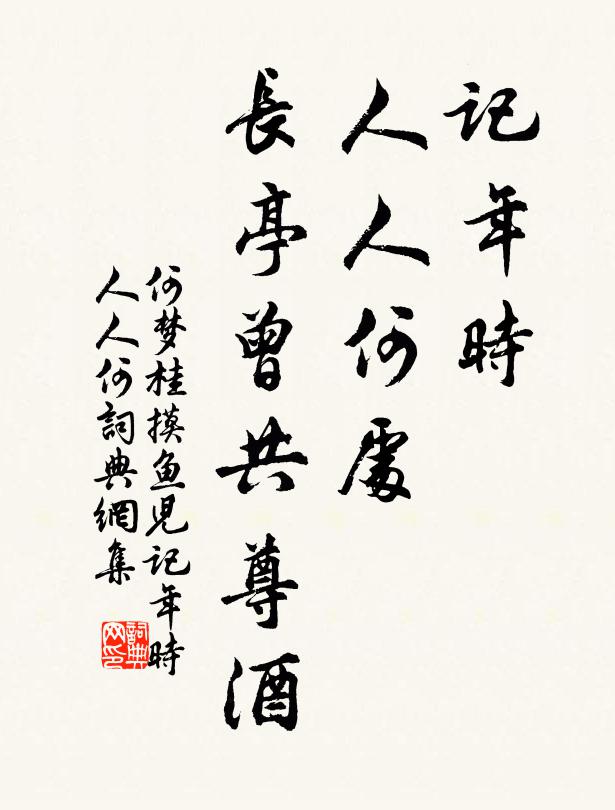 記年時
人人何處
長亭曾共尊酒
何梦桂摸魚児記年時
人人何詞典網集
詞典
网印